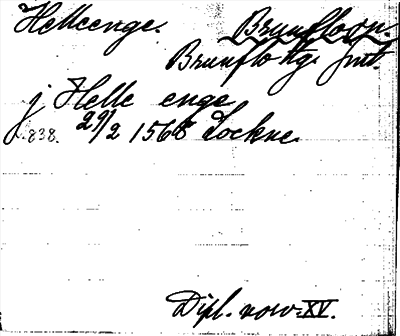 Helleenge. Brunfloon.
Brunflo tg. Jmtl.
j Helle enge
838. 29/2 1568 Lockne.
Dipl. norv. XV.